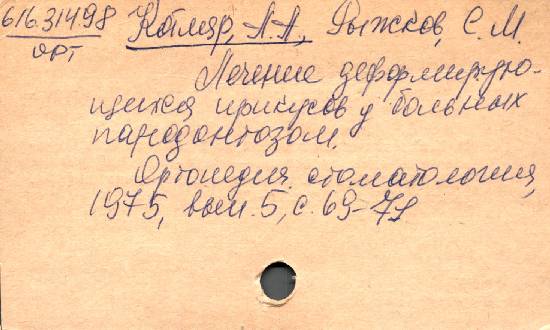 616.314.98 Котляр, А.А., Рыжков, С.М.
ОРТ
Лечение деформирую-
щихся прикусов у больных
пародонтозом.
Ортопедич. стоматология,
1975, вып. 5, с. 69-71